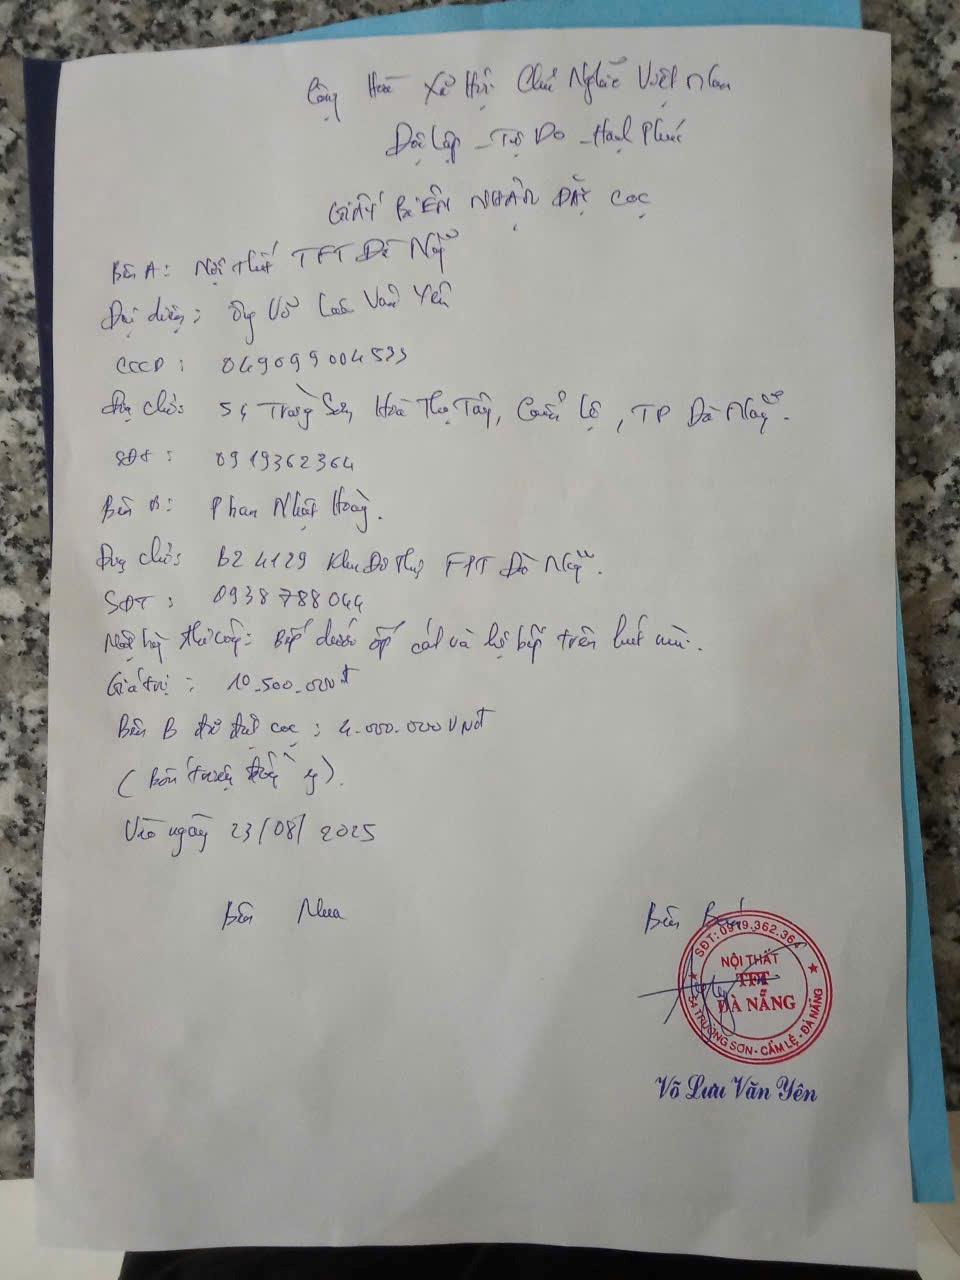 Cộng Hoà Xã Hội Chủ Nghĩa Việt Nam
Độc lập - Tự Do - Hạnh Phúc
GIẤY BIÊN NHẬN ĐẶT CỌC
Bên A: Nội thất TFT Đà Nẵng
Đại diện: Ông Võ Lưu Văn Yên
CCCD: 049099004533
Địa chỉ: 54 Trường Sơn, Hoà Thọ Tây, Cẩm Lệ, TP Đà Nẵng.
SĐT: 0919362364
Bên B: Phan Nhật Hoàng.
Địa chỉ: B2 4129 Khu Đô Thị FPT Đà Nẵng.
SĐT: 0938788044
thi công: Bếp dưới ốp và hệ bếp trên hút mùi.
Giá trị: 10.500.000đ
Bên B đã đặt cọc: 4.000.000 VNĐ
(Bốn triệu đồng y).
Vào ngày 23/08/2025
Bên Mua
Bên Bán
SĐT: 0919.362.364
NỘI THẤT
TFT
ĐÀ NẴNG
54 TRƯỜNG SƠN - CẨM LỆ - ĐÀ NẴNG
Võ Lưu Văn Yên